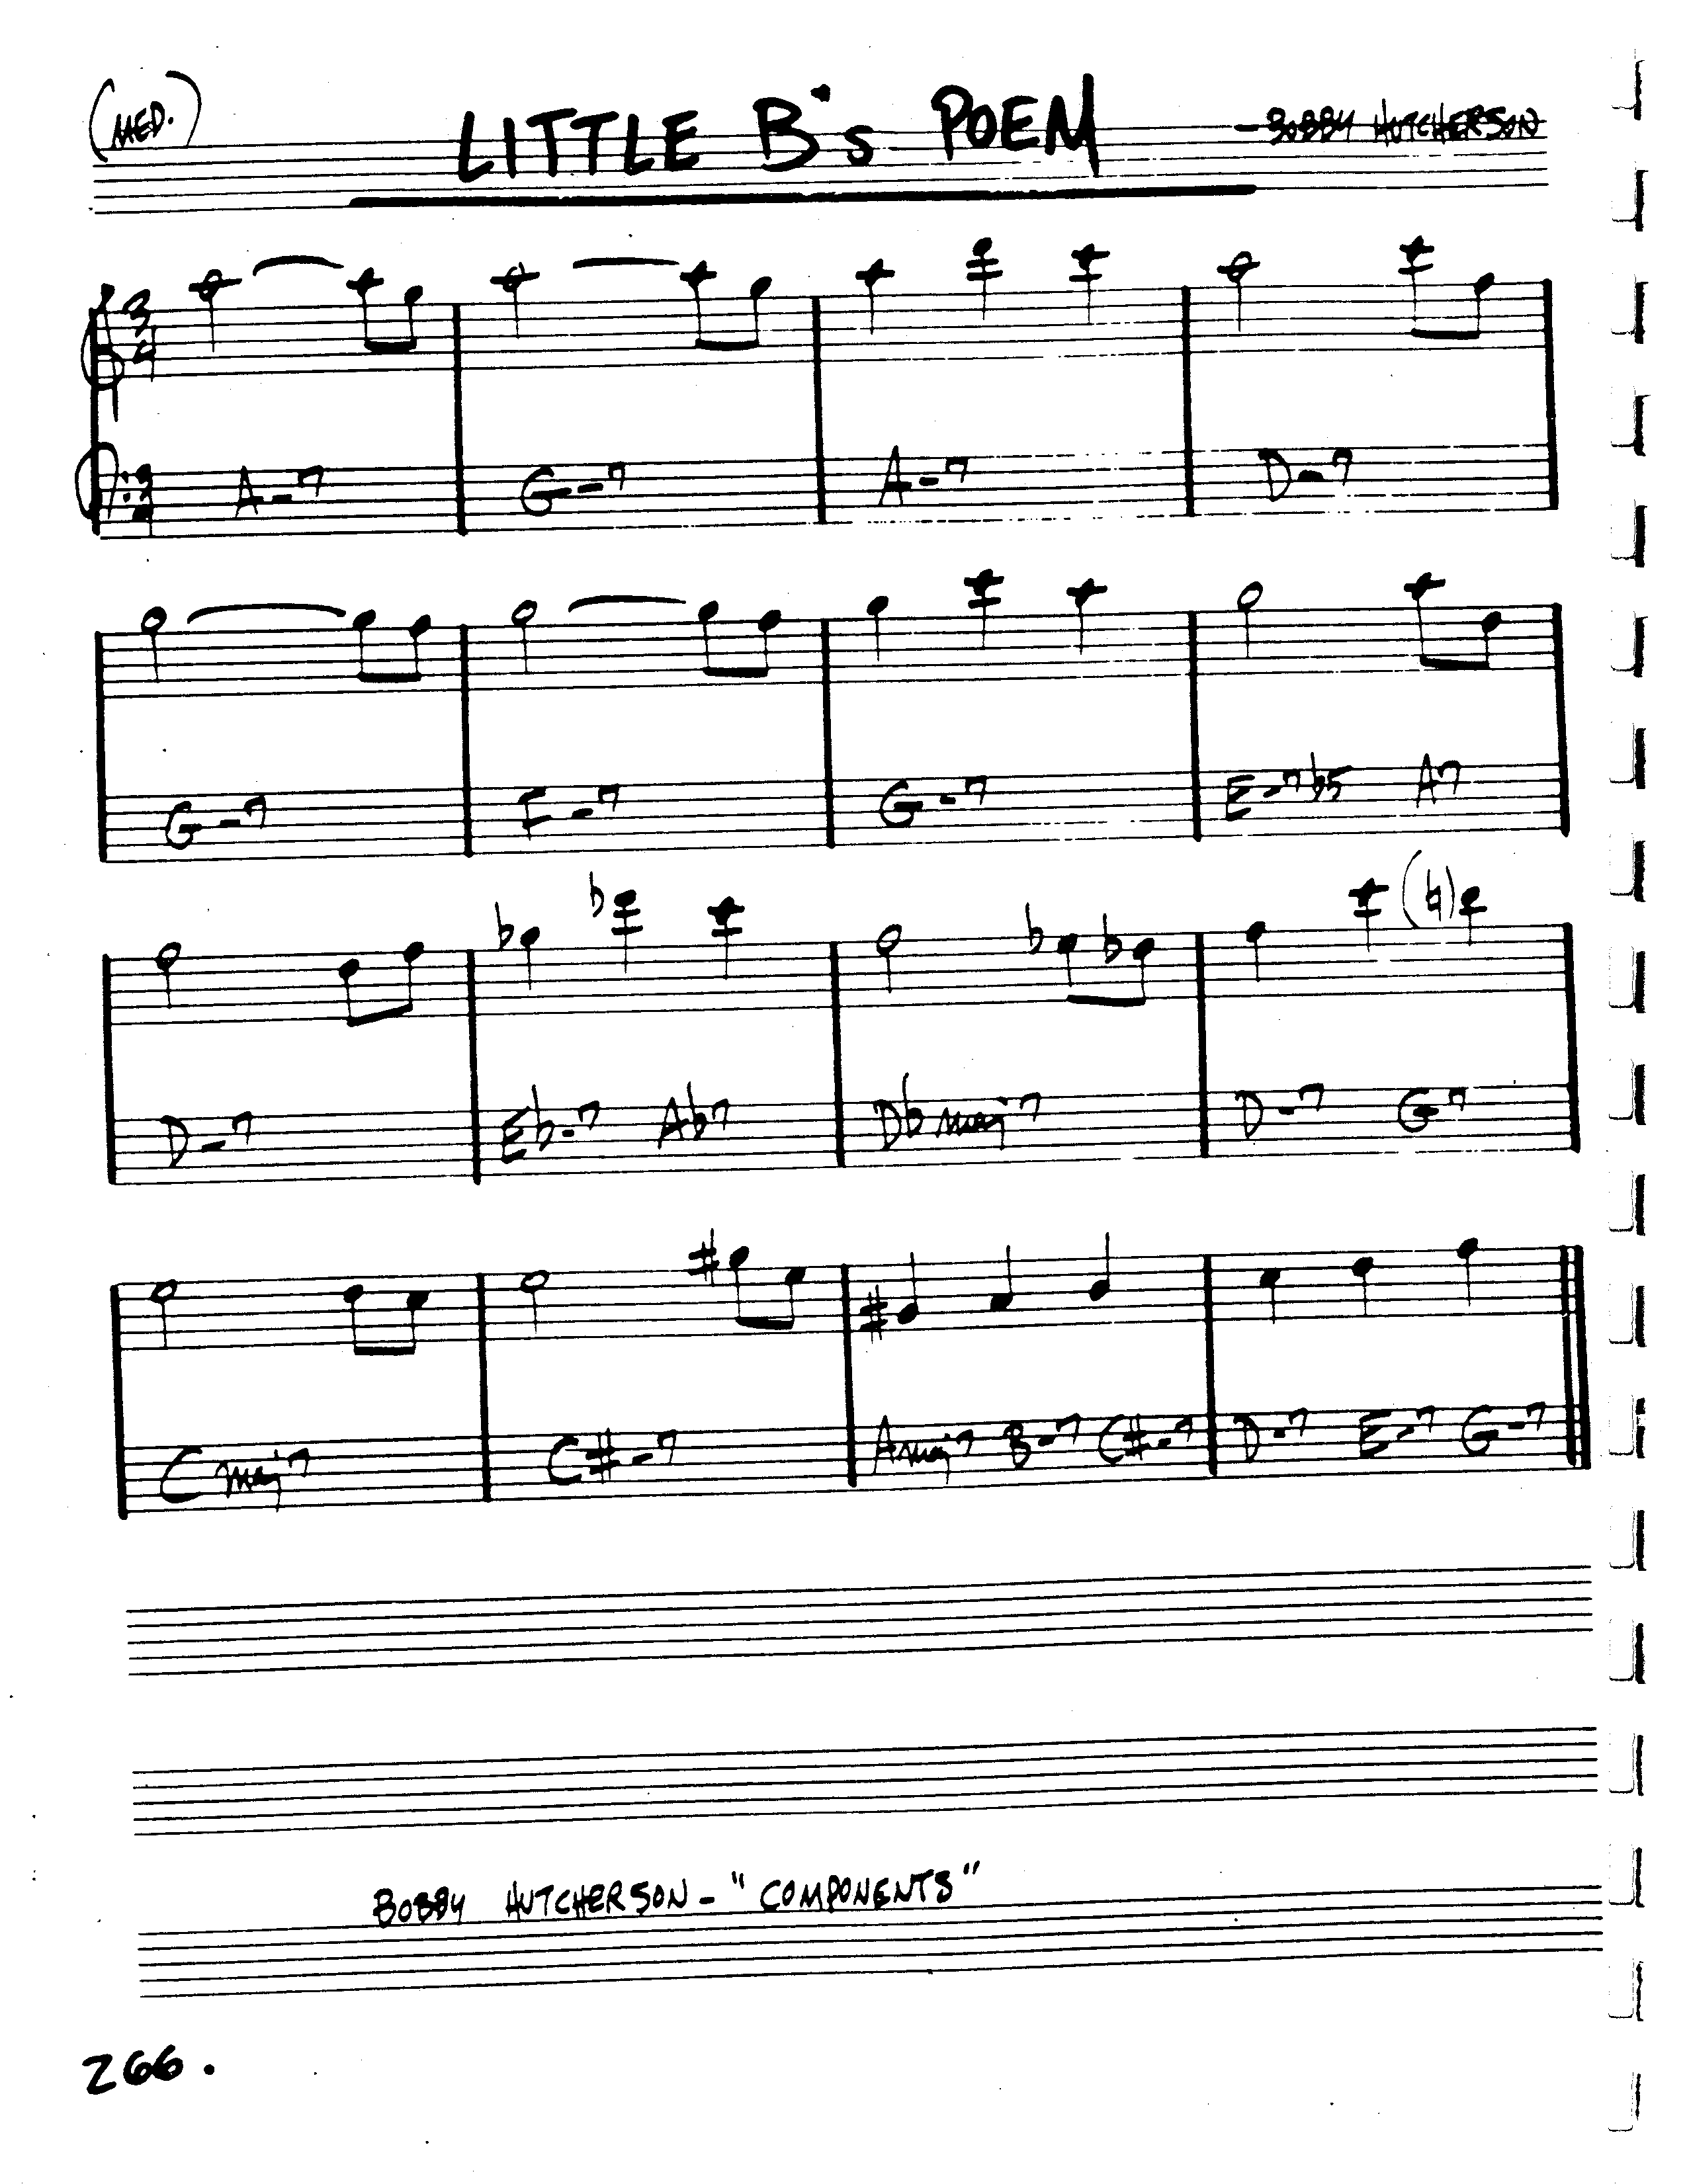 (MED.)
LITTLE B's POEM
- BOBBY HUTCHERSON
3
4
3
4
A-7 G-7 A-7 D-7
G-7 F-7 G-7 E-7b5 A7
D-7 Eb-7 Ab7 Db maj7 D-7 G-7
C maj7 C#-7 Amaj7 B-7 C#-7 D-7 E-7 G-7
BOBBY HUTCHERSON - "COMPONENTS"
266.